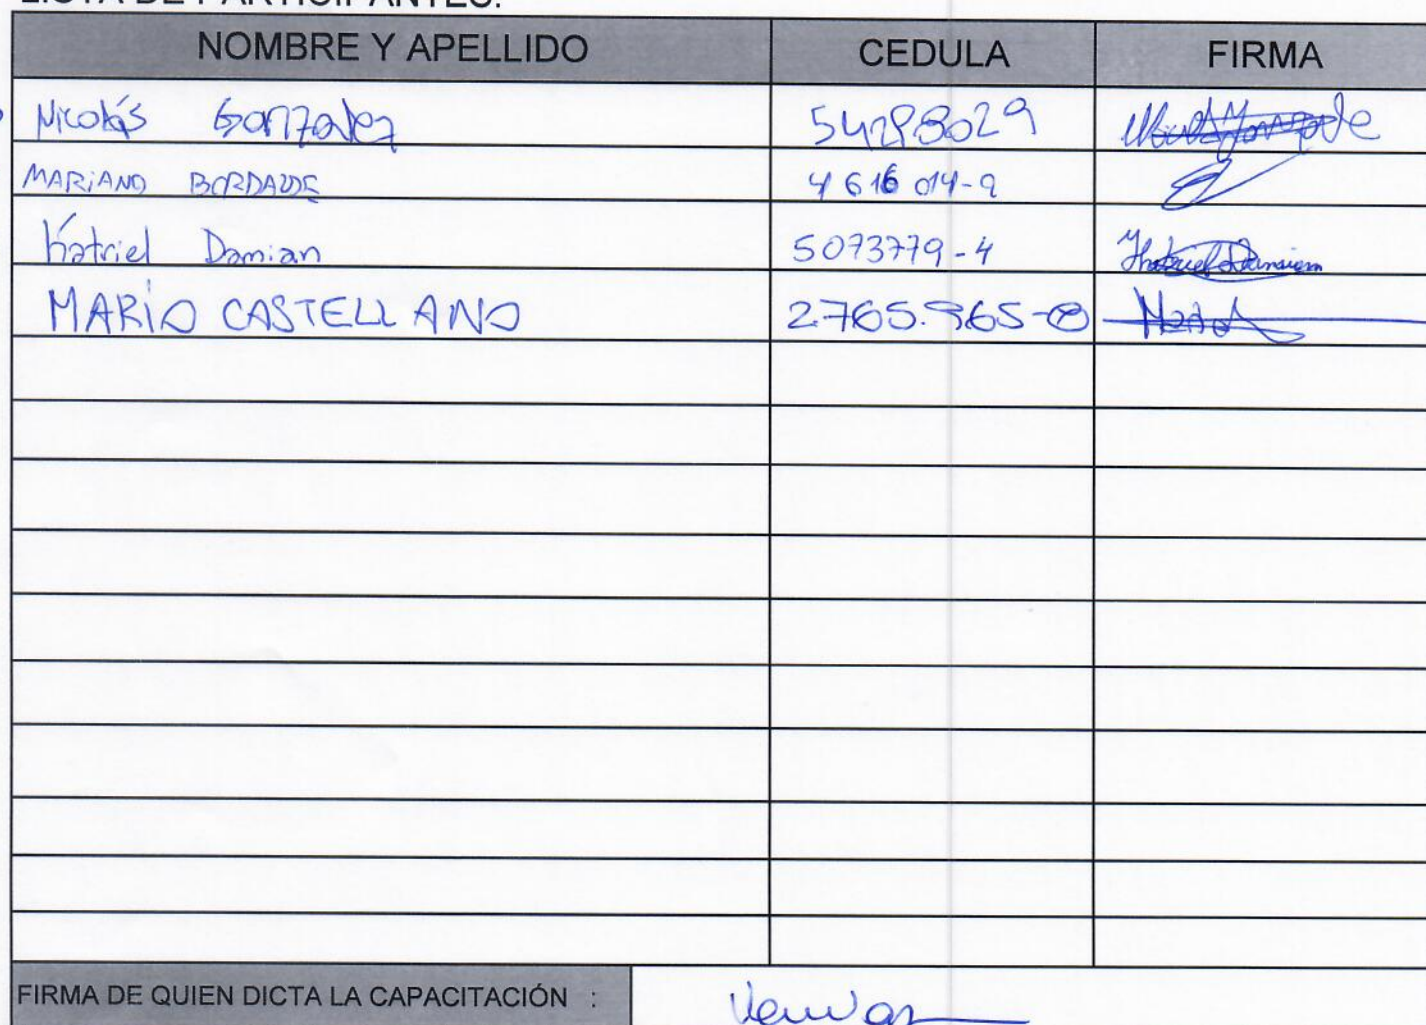 LISTA DE PARTICIPANTES:
NOMBRE Y APELLIDO CEDULA FIRMA
Nicolás Gonzalez 54298029
MARIANO BORDAUDE 4616014-9
Katriel Damian 5073779-4 Katriel Damian
MARIO CASTELLANO 2765.965-8 Mario
FIRMA DE QUIEN DICTA LA CAPACITACIÓN :